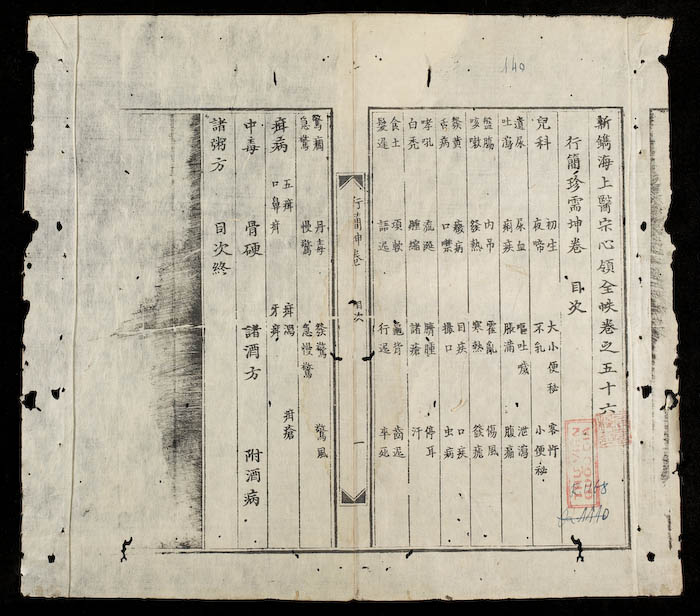 新鐫海上醫宗心領全帙卷之五十六
行簡珍需坤卷 目次
兒科 初生 大小便秘 客忤
夜啼 不乳 小便秘
遺尿 尿血 嘔吐噦 泄瀉
吐瀉 痢疾 脹滿 腹痛
盤腸 內吊 霍亂 傷風
咳嗽 發熱 寒熱 發瘧
發黃 病 目疾 口疾
舌病 口噤 撮口 虫病
哮吼 流涎 臍腫 停耳
白禿 腫 諸瘡 汗
食土 項軟 龜背 齒遲
髮遲 語遲 行遲 卒死
行簡坤卷 目次 一
驚癇 丹毒 發驚 驚風
急驚 慢驚 急慢驚
疳病 五疳 疳瀉 疳瘡
口鼻疳 牙疳
中毒 骨硬 諸酒方 附酒病
諸粥方 目次終
140